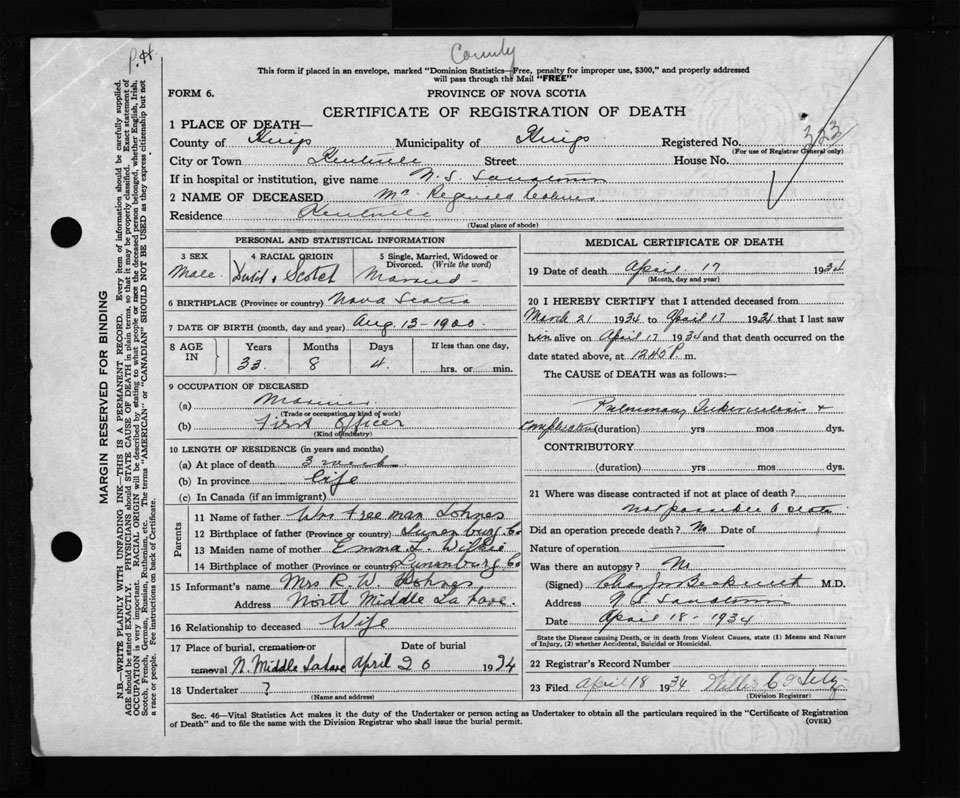 P.H.
County
This form if placed in an envelope, marked "Dominion Statistics—Free, penalty for improper use, $300," and properly addressed
will pass through the Mail "FREE"
FORM 6.
PROVINCE OF NOVA SCOTIA
CERTIFICATE OF REGISTRATION OF DEATH
1 PLACE OF DEATH—
County of Kings Municipality of Kings Registered No. 303
(For use of Registrar General only)
City or Town Kentville Street House No.
If in hospital or institution, give name N. S. Sanatorium
2 NAME OF DECEASED Mr Reginald Lohnes
Residence Kentville
(Usual place of abode)
PERSONAL AND STATISTICAL INFORMATION
3 SEX
Male
4 RACIAL ORIGIN
& Scotch
5 Single, Married, Widowed or Divorced. (Write the word)
Married
6 BIRTHPLACE (Province or country) Nova Scotia
7 DATE OF BIRTH (month, day and year) Aug. 13 - 1900
8 AGE IN
Years Months Days If less than one day,
33 8 4 hrs. or min.
9 OCCUPATION OF DECEASED
(a) Mariner
(Trade or occupation or kind of work)
(b) First Officer
(Kind of industry)
10 LENGTH OF RESIDENCE (in years and months)
(a) At place of death 3
(b) In province Life
(c) In Canada (if an immigrant)
Parents
11 Name of father Wm Freeman Lohnes
12 Birthplace of father (Province or country) Lunenburg Co
13 Maiden name of mother Emma L. Wilkie
14 Birthplace of mother (Province or country) Lunenburg Co
15 Informant's name Mrs R. W. Lohnes
Address North Middle LaHave.
16 Relationship to deceased Wife
17 Place of burial, cremation or removal N. Middle Lahave Date of burial April 20 1934
18 Undertaker ?
(Name and address)
MEDICAL CERTIFICATE OF DEATH
19 Date of death April 17 1934
(Month, day and year)
20 I HEREBY CERTIFY that I attended deceased from
March 21 1934 to April 17 1934 that I last saw
him alive on April 17 1934 and that death occurred on the
date stated above, at 12.45 P. m.
The CAUSE of DEATH was as follows:—
Pulmonary Tuberculosis &
Complications (duration) yrs mos dys.
CONTRIBUTORY
(duration) yrs mos dys.
21 Where was disease contracted if not at place of death?
not possible to state
Did an operation precede death? No Date of
Nature of operation
Was there an autopsy? No
(Signed) M.D.
Address N S Sanatorium
Date April 18 - 1934
State the Disease causing Death, or in death from Violent Causes, state (1) Means and Nature
of Injury, (2) whether Accidental, Suicidal or Homicidal.
22 Registrar's Record Number
23 Filed April 18 1934
(Division Registrar)
Sec. 46—Vital Statistics Act makes it the duty of the Undertaker or person acting as Undertaker to obtain all the particulars required in the "Certificate of Registration
of Death" and to file the same with the Division Registrar who shall issue the burial permit.
(OVER)
MARGIN RESERVED FOR BINDING
N.B.—WRITE PLAINLY WITH UNFADING INK—THIS IS A PERMANENT RECORD. Every item of information should be carefully supplied.
AGE should be stated EXACTLY. PHYSICIANS should STATE CAUSE OF DEATH in plain terms, so that it may be properly classified. Exact statement of
OCCUPATION is very important. RACIAL ORIGIN will be described by stating to what people or race the deceased person belonged, whether English, Irish,
Scotch, French, German, Russian, Ruthenian, etc. The terms "AMERICAN" or "CANADIAN" SHOULD NOT BE USED as they express citizenship but not
a race or people. See instructions on back of Certificate.